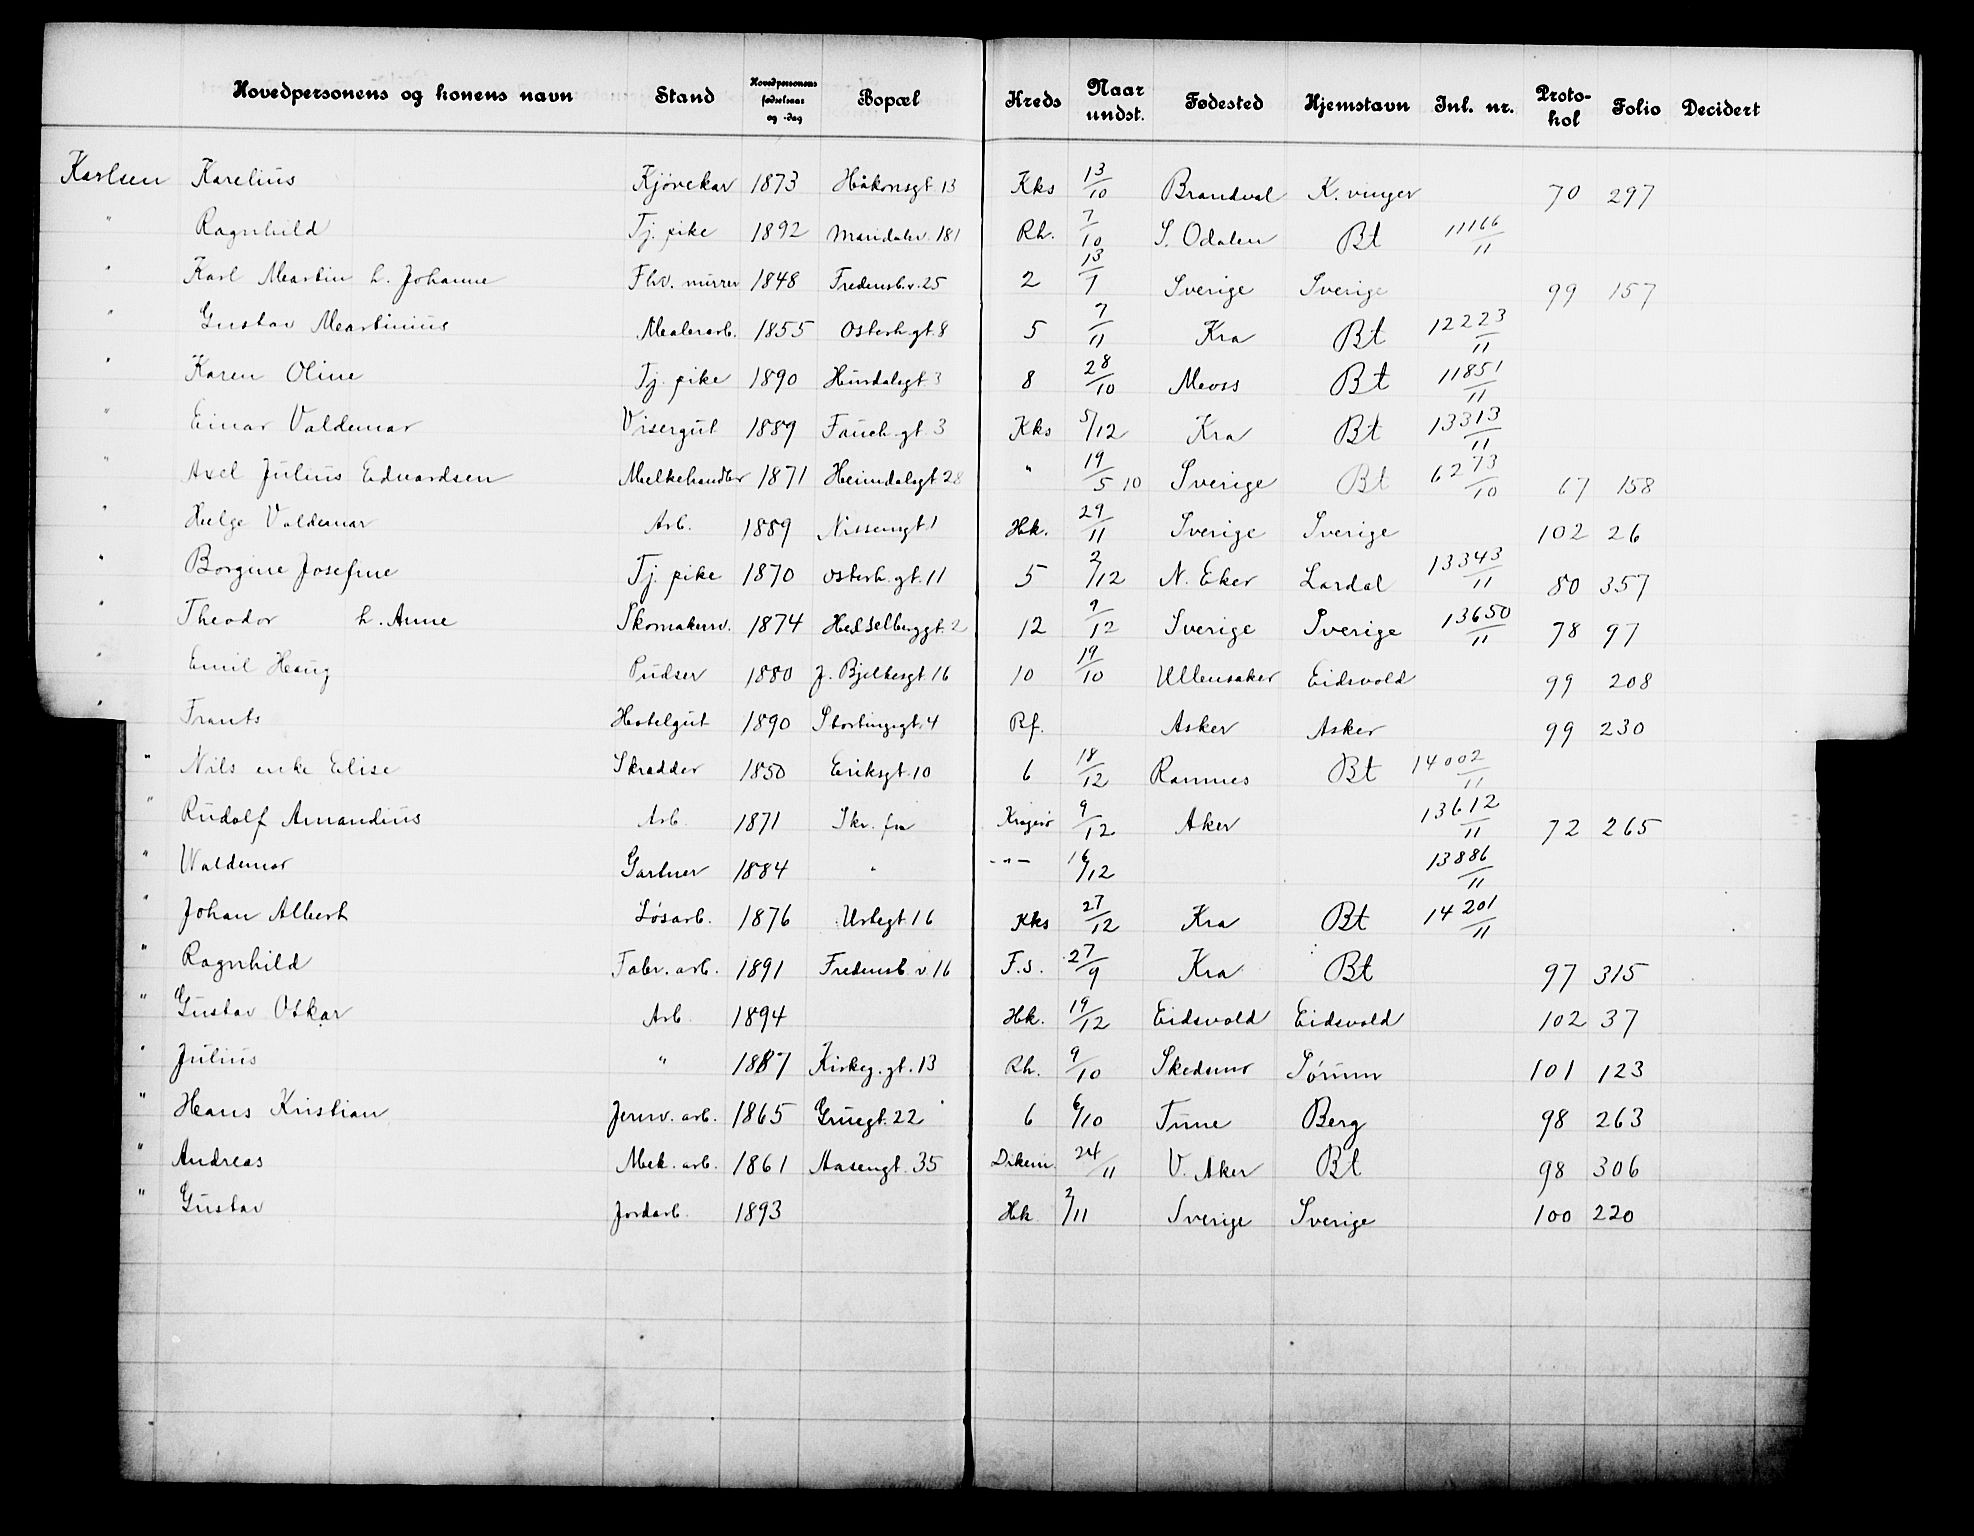 Hovedpersonens og konens navn Stand Hovedpersonens fødselsaar og -dag Bopæl Kreds Naar undst. Fødested Hjemstavn Inl. nr. Proto-kol Folio Decidert
Karlsen Karelius Kjørekar 1873 Håkonsgt 13 Kks 13/10 Brandval K. vinger 70 297
" Ragnhild Tj. pike 1892 Maridalsv. 181 Rh. 7/10 S. Odalen Bt 11166/11
" Karl Martin h. Johanne Fhv. murer 1848 Fredensb.v. 25 2 13/1 Sverige Sverige 99 157
" Gustav Martinius Malerarb. 1855 Osterh.gt. 8 5 7/11 Kra Bt 12223/11
" Karen Oline Tj. pike 1890 Hurdalsgt. 3 8 28/10 Moss Bt 11851/11
" Einar Valdemar Visergut 1889 Fauch. gt. 3 Kks 5/12 Kra Bt 13313/11
" Axel Julius Edvardsen Melkehandler 1871 Heimdalsgt 28 " 19/5 10 Sverige Bt 6273/10 67 158
" Helge Valdemar Arb. 1889 Nissensgt. 1 Hk. 29/11 Sverige Sverige 102 26
" Borgine Josefine Tj. pike 1870 Osterh. gt. 11 5 2/12 N. Eker Lardal 13343/11 80 357
" Theodor h. Anne Skomakersv. 1874 Hesselberggt. 2 12 9/12 Sverige Sverige 13650/11 78 97
" Emil Haug Pudser 1880 J. Bjelkesgt. 16 10 19/10 Ullensaker Eidsvold 99 208
" Frants Hotelgut 1890 Stortingsgt. 4 Rf. Asker Asker 99 230
" Nils enke Elise Skrædder 1850 Eriksgt. 10 6 18/12 Ramnes Bt 14002/11
" Rudolf Amandius Arb. 1871 Skr. fra Kragerø 9/12 Aker 13612/11 72 265
" Waldemar Gartner 1884 " -"- 16/12 13886/11
" Johan Albert Løsarb. 1876 Urtegt. 16 Kks 27/12 Kra Bt 14201/11
" Ragnhild Fabr. arb. 1891 Fredensb. v. 16 F.s. 27/9 Kra Bt 97 315
" Gustav Oskar Arb. 1894 Hk. 19/12 Eidsvold Eidsvold 102 37
" Julius " 1887 Kirkeg. gt. 13 Rh. 9/10 Skedsmo Sørum 101 123
" Hans Kristian Jernv. arb. 1865 Gruegt. 22 6 6/10 Tune Berg 98 263
" Andreas Mek. arb. 1861 Aasengt. 35 Dikem. 24/11 V. Aker Bt 98 306
" Gustav Jordarb. 1893 Hk. 2/11 Sverige Sverige 100 220